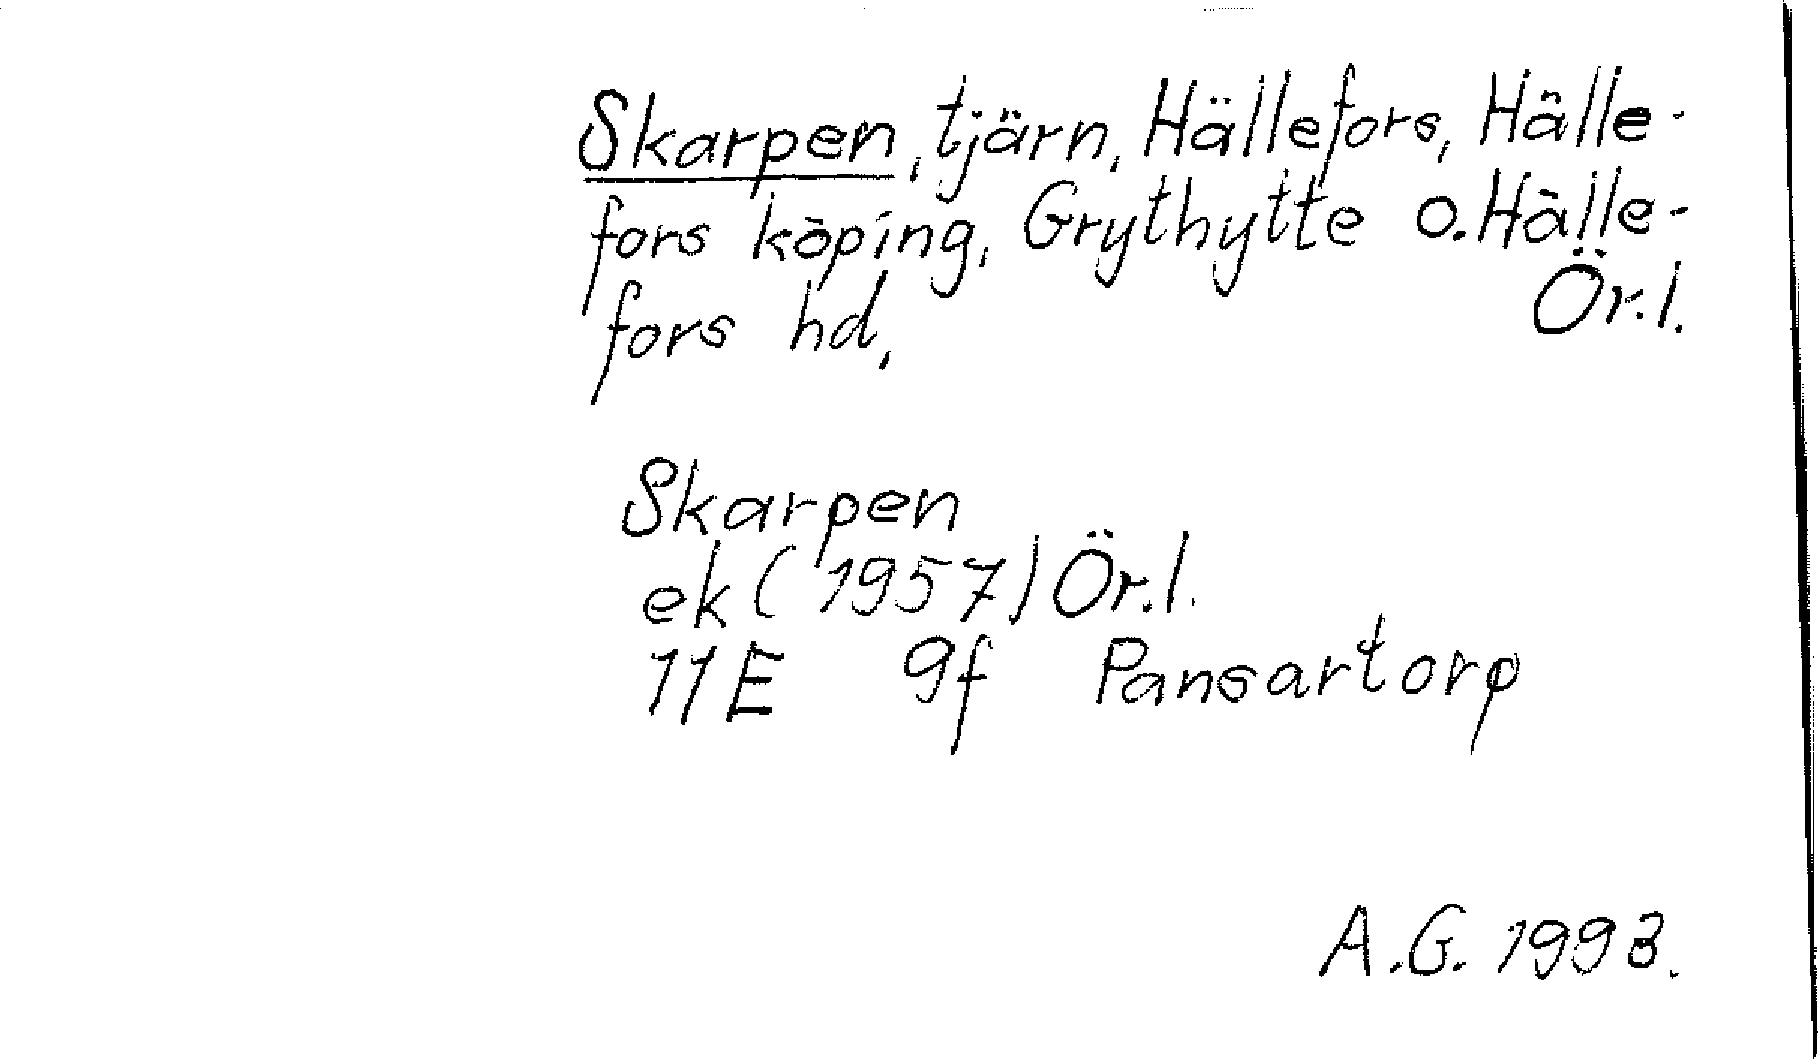 Skarpen, tjärn, Hällefors, Hälle-
fors köping, Grythytte o. Hälle-
fors hd, Ör.l.
Skarpen
ek (1957) Ör.l.
11E 9f Pansartorp
A.G. 1993.